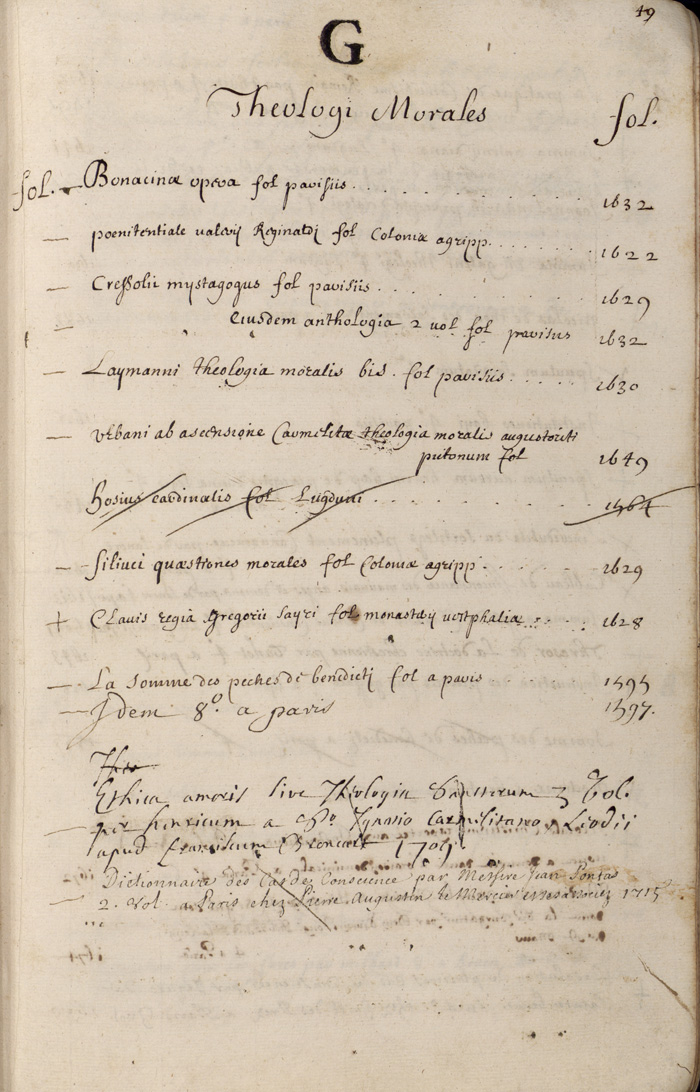 49
G
Theologi Morales fol.
fol. — Bonacinæ opera fol parisiis. 1632
— poenitentiale valerij Reginaldj fol Coloniæ agripp. 1622
— Cressolii mystagogus fol parisiis. 1629
— Eiusdem anthologia 2 vol fol parisiis 1632
— Laymanni theologia moralis bis. fol parisiis. 1630
— vrbani ab ascensione Carmelitæ theologia moralis augustoriti
pictonum fol 1649
hosius cardinalis fol Lugduni. 1564
— filiuci quæstiones morales fol Coloniæ agripp. 1629
+ Clauis regia gregorii sayri fol monasterij vestphaliæ 1628
— La somme des peches de benedicti fol a paris 1595
— Idem 8º. a paris 1597.
Ethica amoris sive Theologia Sanctorum 3 Vol.
— per henricum a Sto. Ignatio Carmelitano, Leodii
apud franciscum Broncart 1709
Dictionnaire des Cas de Conscience par Messire Jean Pontas
— 2. Vol. a Paris chez Pierre Augustin le Mercier 1715